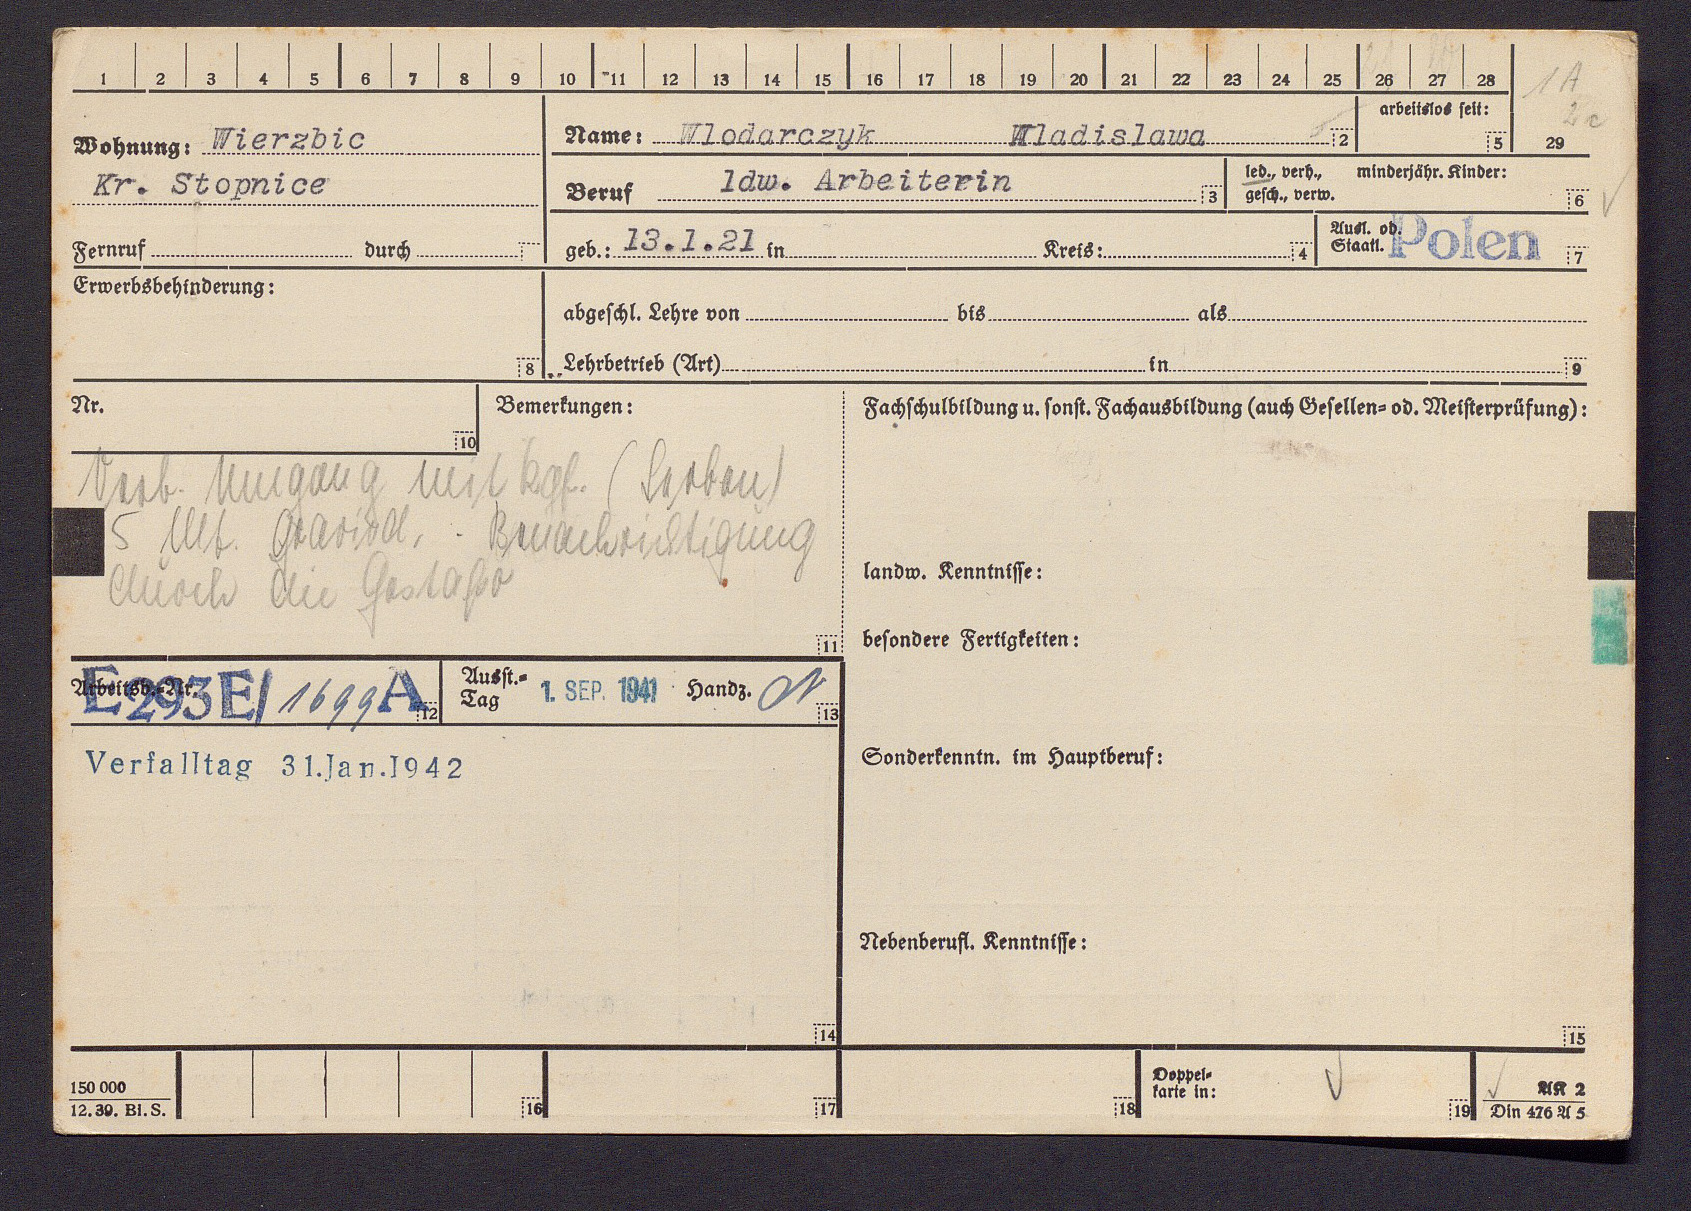 1 2 3 4 5 6 7 8 9 10 11 12 13 14 15 16 17 18 19 20 21 22 23 24 25 26 27 28
1 A
2 c
29
Wohnung: Wierzbic
Kr. Stopnice
Name: Wlodarczyk Wladislawa 2
arbeitslos seit: 5
Beruf ldw. Arbeiterin 3
led., verh., minderjähr. Kinder:
gesch., verw. 6
Fernruf durch
geb.: 13.1.21 in Kreis: 4
Ausl. od.
Staatl. Polen 7
Erwerbsbehinderung:
8
abgeschl. Lehre von bis als
Lehrbetrieb (Art) in 9
Nr.
10
Bemerkungen:
Verb. Umgang mit Kgf. (Serben)
5 Mt. Gravid. Benachrichtigung
durch die Gestapo
11
Fachschulbildung u. sonst. Fachausbildung (auch Gesellen- od. Meisterprüfung):
landw. Kenntnisse:
besondere Fertigkeiten:
Arbeitsb.-Nr. E 293 E/ 1699 A 12
Ausst.-
Tag 1. SEP. 1941 Handz. 13
Verfalltag 31.Jan.1942
14
Sonderkenntn. im Hauptberuf:
Nebenberufl. Kenntnisse:
15
150 000
12. 39. Bl. S.
16 17 18
Doppel-
karte in: 19
AK 2
Din 476 A 5